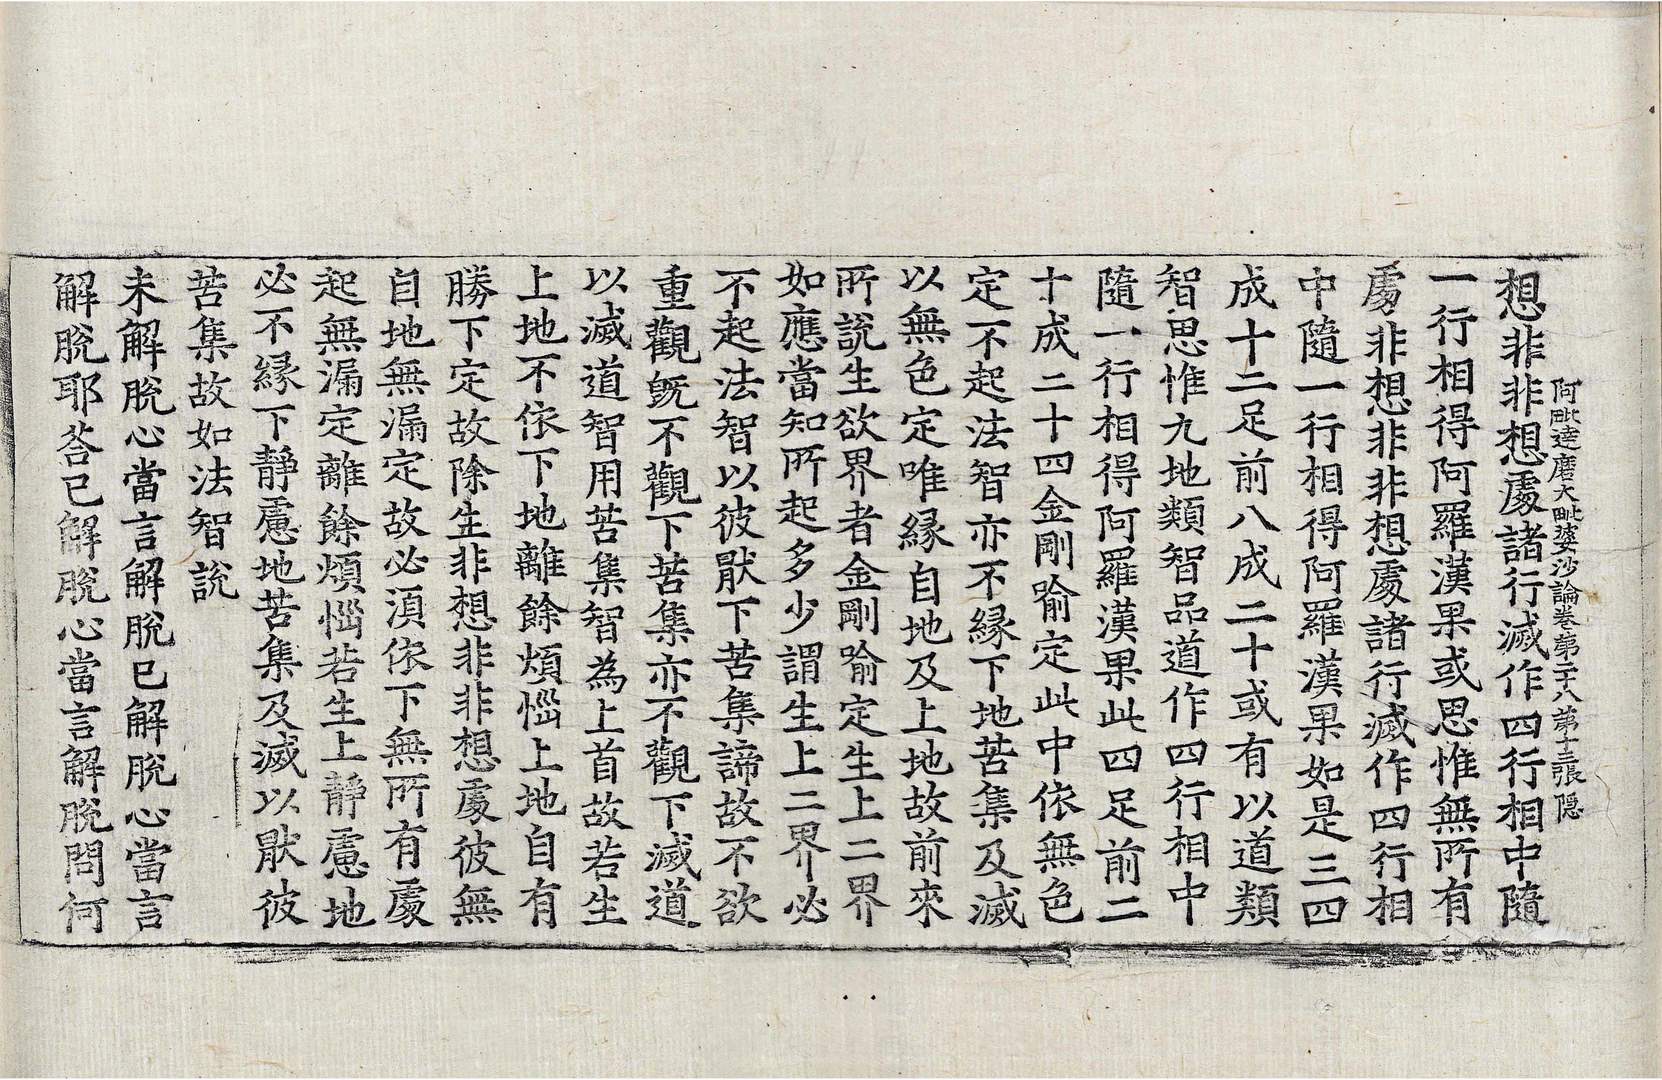 阿毗達磨大毗婆沙論卷第二十八 第十三張 隱
想非非想處諸行滅作四行相中隨
一行相得阿羅漢果或思惟無所有
處非想非非想處諸行滅作四行相
中隨一行相得阿羅漢果如是三四
成十二足前八成二十或有以道類
智思惟九地類智品道作四行相中
隨一行相得阿羅漢果此四足前二
十成二十四金剛喻定此中依無色
定不起法智亦不緣下地苦集及滅
以無色定唯緣自地及上地故前來
所說生欲界者金剛喻定生上二界
如應當知所起多少謂生上二界必
不起法智以彼猒下苦集諦故不欲
重觀旣不觀下苦集亦不觀下滅道
以滅道智用苦集智為上首故若生
上地不依下地離餘煩惱上地自有
勝下定故除生非想非非想處彼無
自地無漏定故必湏依下無所有處
起無漏定離餘煩惱若生上靜慮地
必不緣下靜慮地苦集及滅以猒彼
苦集故如法智說
未解脫心當言解脫已解脫心當言
解脫耶荅已解脫心當言解脫問何